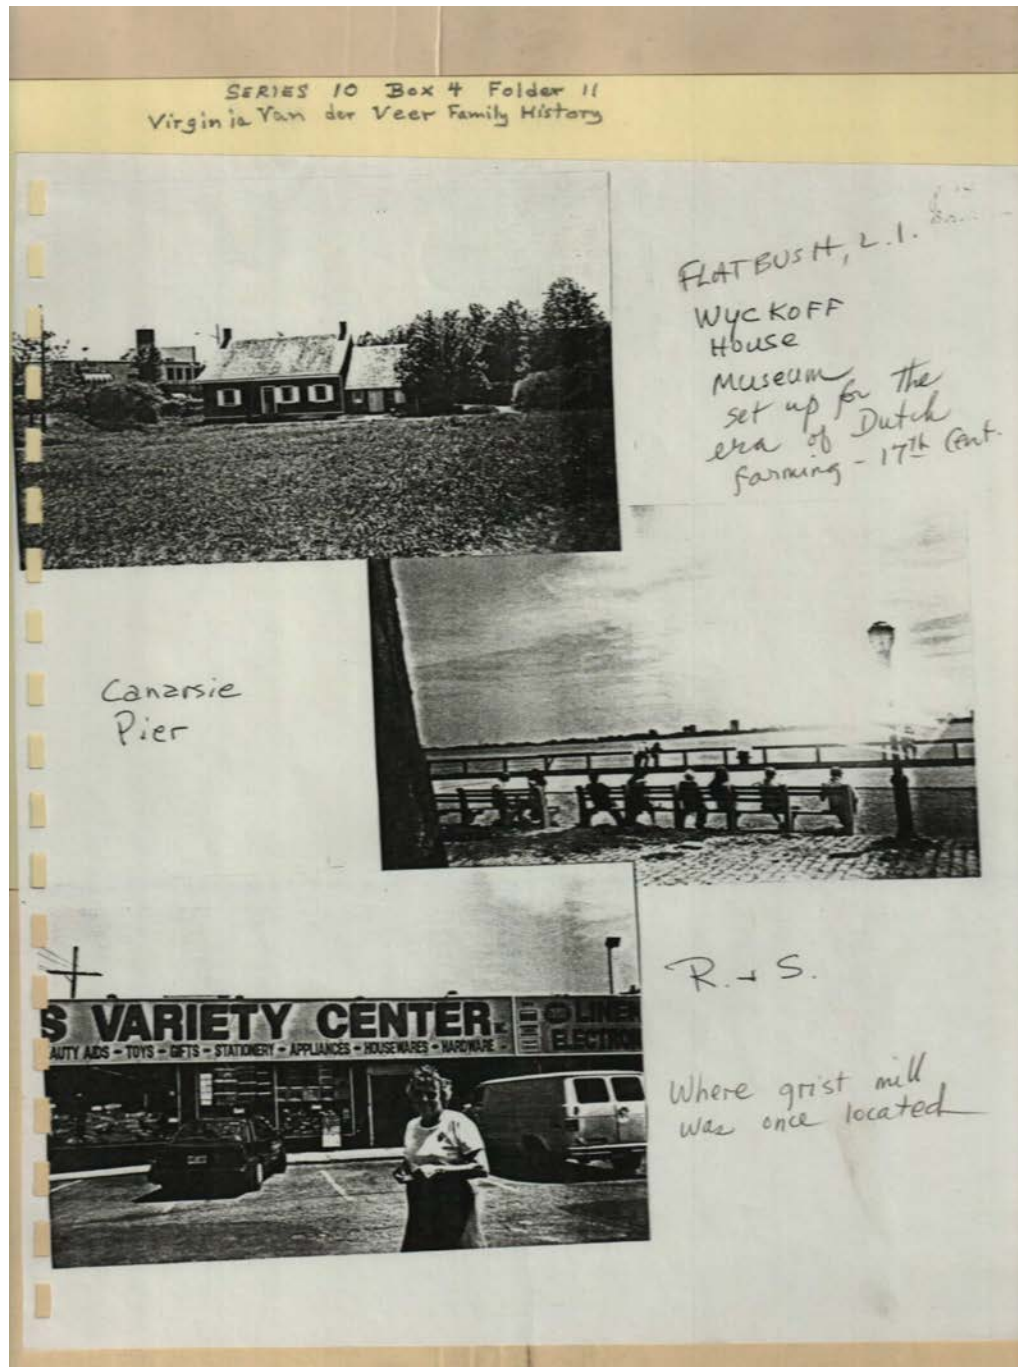 SERIES 10 Box 4 Folder 11
Virginia Van der Veer Family History
FLATBUSH, L.I.
WYCKOFF
House
Museum
set up for the
era of Dutch
farming - 17th Cent.
Canarsie
Pier
S VARIETY CENTER
AUTY AIDS - TOYS - GIFTS - STATIONERY - APPLIANCES - HOUSEWARES - HARDWARE -
LINEN
ELECTRON
R. + S.
Where grist mill
was once located